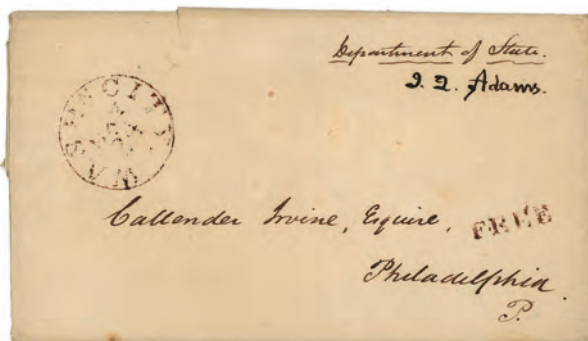 Department of State.
J. Q. Adams.
WASHN CITY
Callender Irvine, Esquire,
FREE
Philadelphia.
P.